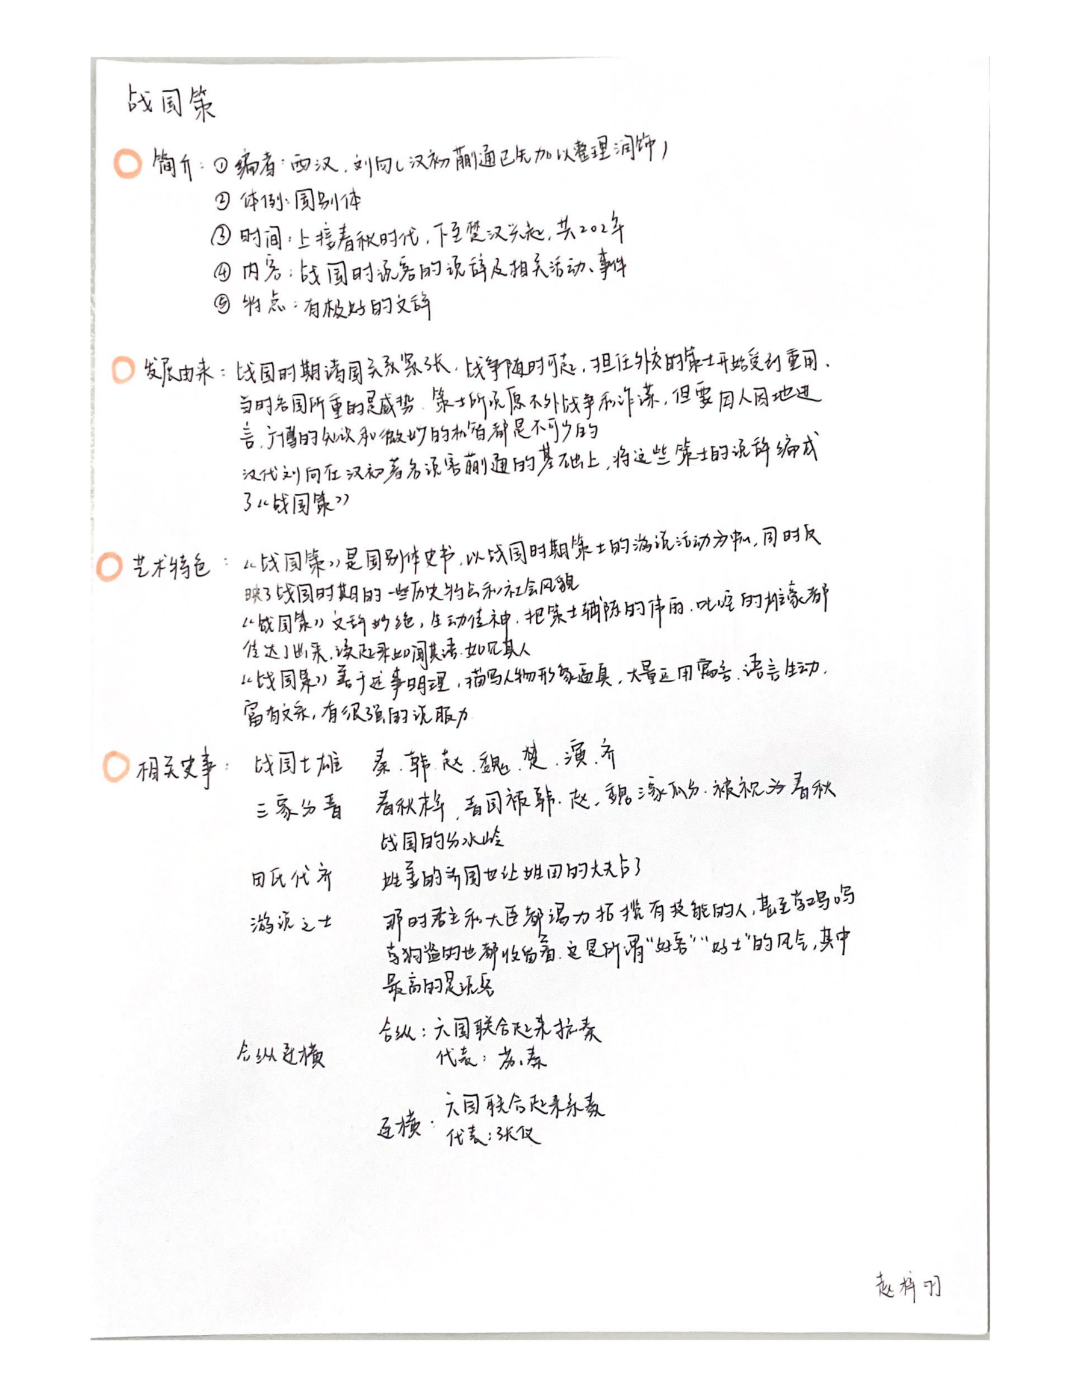 战国策
简介：①编者：西汉．刘向（汉初蒯通已先加以整理润饰）
②体例：国别体
③时间：上接春秋时代，下至楚汉兴起，共202年
④内容：战国时说客的说辞及相关活动、事件
⑤特点：有极好的文辞
发展由来：战国时期诸国关系紧张．战争随时可起，担任外交的策士开始受到重用．
当时各国所重的是威势．策士所说原不外战争和诈谋，但要因人因地进
言．广博的知识和微妙的机智都是不可少的
汉代刘向在汉初著名说客蒯通的基础上，将这些策士的说辞编成
了《战国策》
艺术特色：《战国策》是国别体史书，以战国时期策士的游说活动为中心，同时反
映了战国时期的一些历史特点和社会风貌
《战国策》文辞妙绝，生动传神．把策士辅陈的伟丽．叱咤的雄豪都
传达了出来，读起来如闻其语．如见其人
《战国策》善于述事明理，描写人物形象逼真，大量运用寓言．语言生动．
富有文采，有很强的说服力
相关史事：战国七雄 秦．韩．赵．魏．楚．演．齐
三家分晋 春秋末年，晋国被韩．赵．魏三家瓜分．被视为春秋
战国的分水岭
田氏代齐 姓姜的齐国也让姓田的大夫占了
游说之士 那时君主和大臣都竭力招揽有技能的人，甚至学鸡鸣
学狗盗的也都收留着．这是所谓“好客”“好士”的风气，其中
最高的是说客
合纵连横 合纵：六国联合起来抗秦
代表：苏秦
连横：六国联合起来亲秦
代表：张仪
赵梓羽